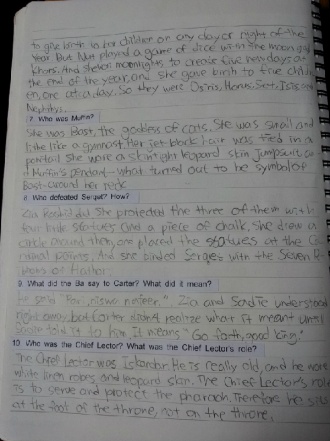 to give birth to her children on any day or night of the
year. But Nut played a game of dice with the moon god
Khons. And she won moonlights to create five new days at
the end of the year, and she gave birth to five childr
en, one at a day. So they were Osiris, Horus, Set, Isis and
Nephthys.
7. Who was Muffin?
She was Bast, the goddess of cats. She was small and
lithe like a gymnast. Her jet-black hair was tied in a
ponytail. She wore a skin tight leopard skin jumpsuit
Muffin's pendant what turned out to be symbol of
Bast around her neck.
8. Who defeated Serqet? How?
Zia Rashid did. She protected the three of them with
four little statues and a piece of chalk. She drew a
circle around them, and placed the statues at the
points. And she binded Serqet with the Seven R
ibbons of Hathor.
9. What did the Ba say to Carter? What did it mean?
He said Zia and Sadie understood
right away but Carter didn't realize what it meant until
told it to him. It means "Go forth, good king."
10. Who was the Chief Lector? What was the Chief Lector's role?
The Chief Lector was Iskandar. He is really old, and he wore
white linen robes and leopard skin. The Chief Lector's role
is to serve and protect the pharaoh. Therefore he sits
at the foot of the throne, not on the throne.